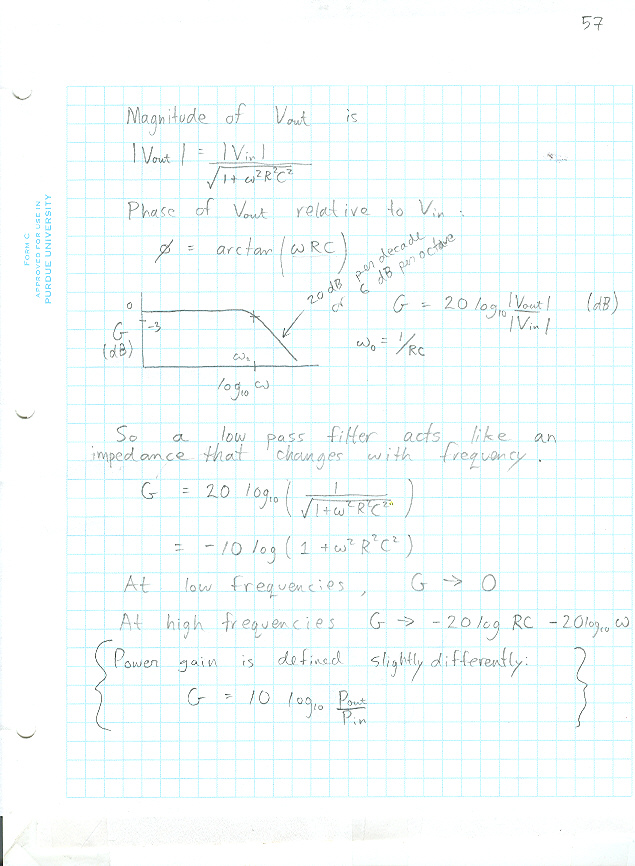 57
FORM C
APPROVED FOR USE IN
PURDUE UNIVERSITY
Magnitude of Vout is
|Vout| = |Vin| / √(1 + ω²R²C²)
Phase of Vout relative to Vin :
ϕ = arctan(ωRC)
20 dB per decade
or 6 dB per octave
G = 20 log₁₀ |Vout| / |Vin| (dB)
ω₀ = 1/RC
0
-3
G
(dB)
ω₀
log₁₀ ω
So a low pass filter acts like an
impedance that changes with frequency.
G = 20 log₁₀ ( 1 / √(1+ω²R²C²) )
= -10 log ( 1 + ω²R²C² )
At low frequencies, G → 0
At high frequencies G → -20 log RC -20 log₁₀ ω
{ Power gain is defined slightly differently: }
G = 10 log₁₀ Pout / Pin